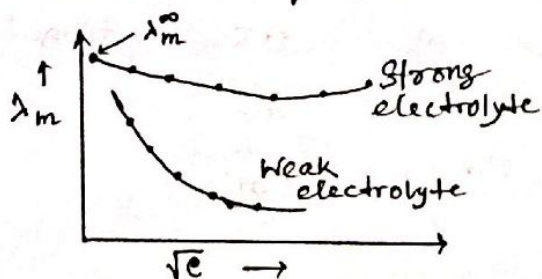 λ∞m
Strong
electrolyte
↑
λm
Weak
electrolyte
√c →